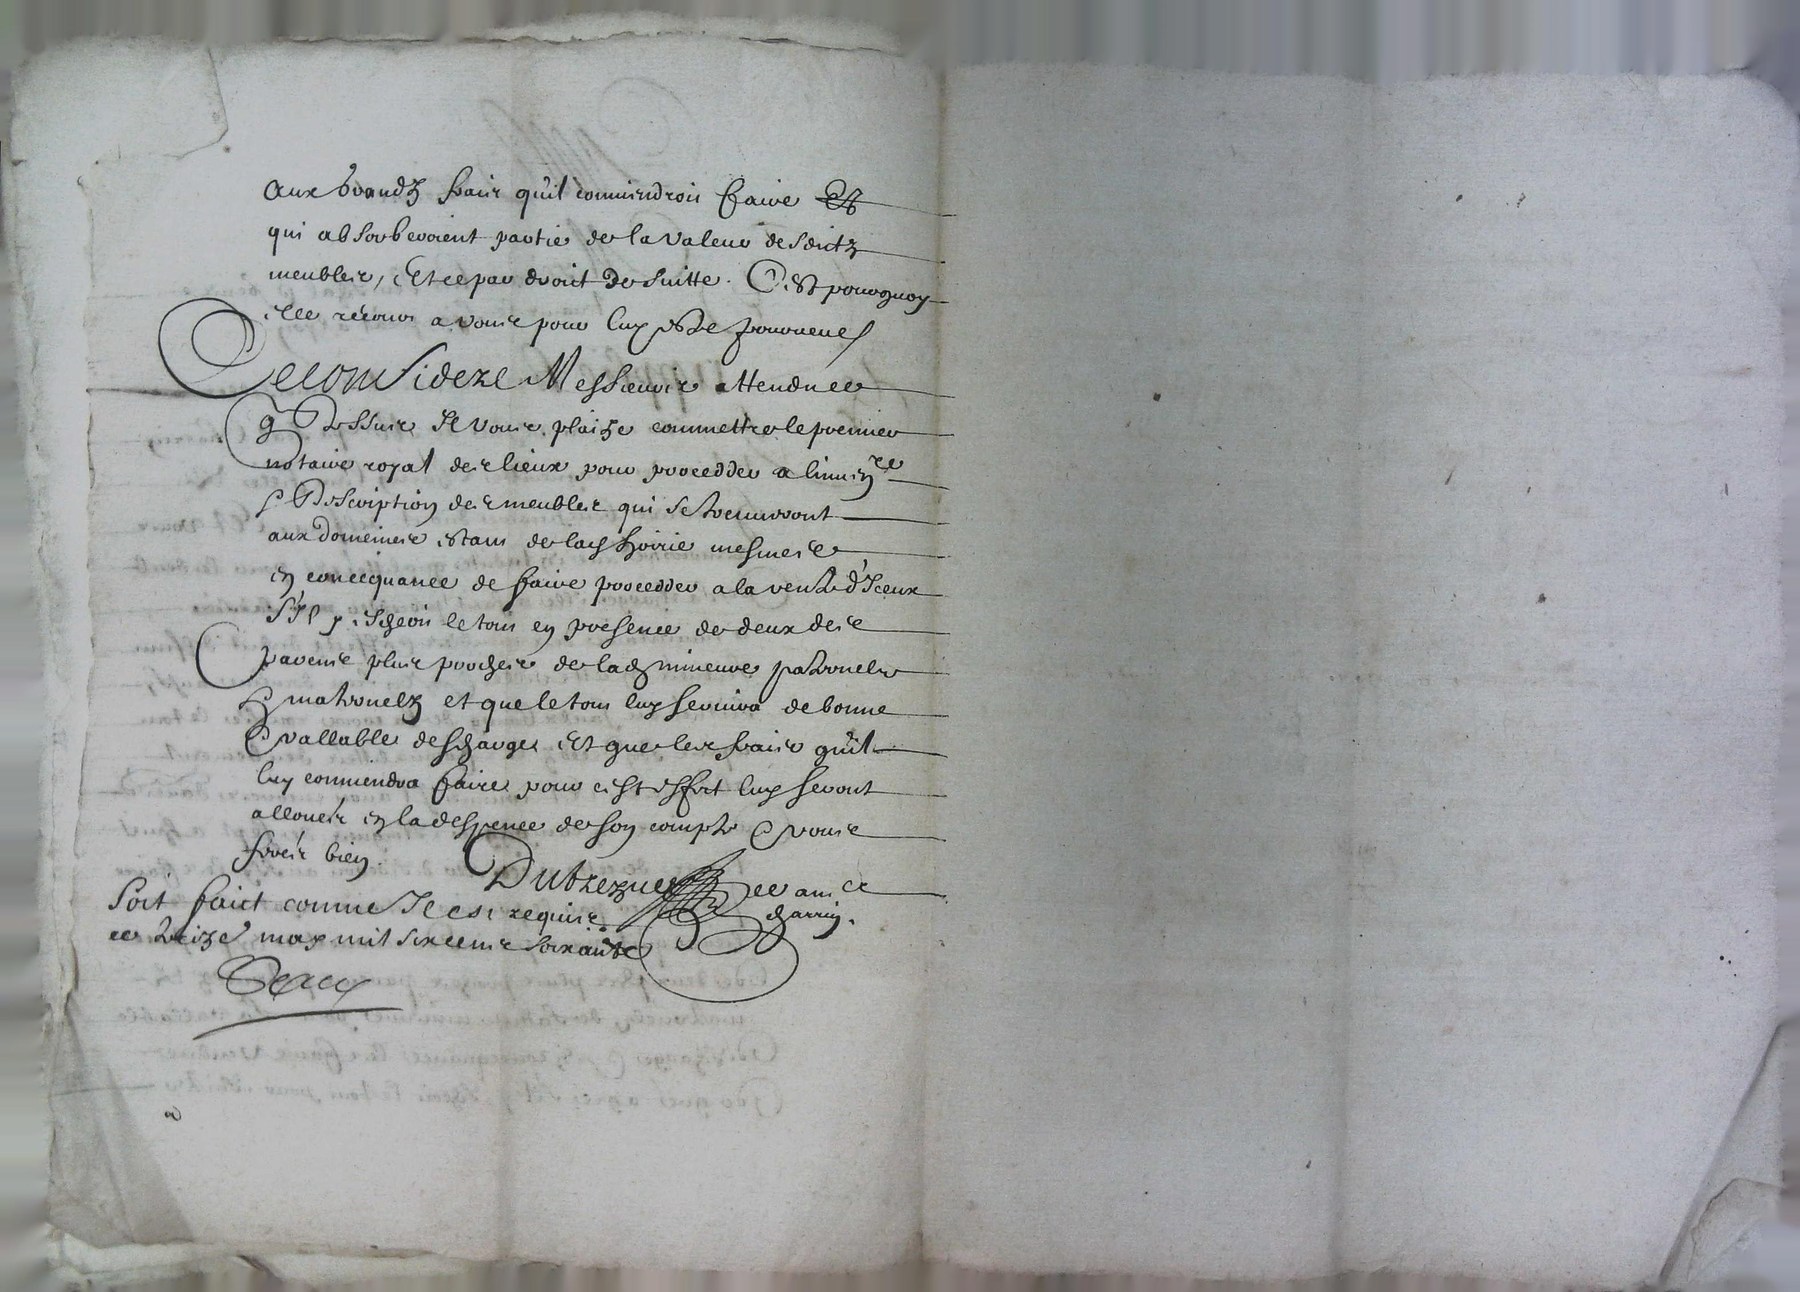 aux grandz frais qu'il conviendroit faire et
qui absorberoient partie de la valeur desdictz
meubles, Et ce par droict de suitte. C'est pourquoy
elle recours a vous pour luy estre pourveue
Ce considere Messieurs attendu ce
q dessus Il vous plaize commettre le premier
notaire royal des lieux pour procedder a linven^re
& Description des meubles qui se treuvront
aux domeines estans de lad hoirie mesmes
en concequance de faire procedder a la vente d'Iceux
s'Il y eschoit le tout en presence de deux des
parens plus proches de lad mineure paternelz
& maternelz et que le tout luy servira de bonne
& vallable descharge Et que les frais qu'il
luy conviendra faire pour cest effect luy seront
allouées en la despence de son compte & vous
ferés bien. Dubreznet
charrin.
Soit faict comme Il est requis
ce treize may mil six cens soixante